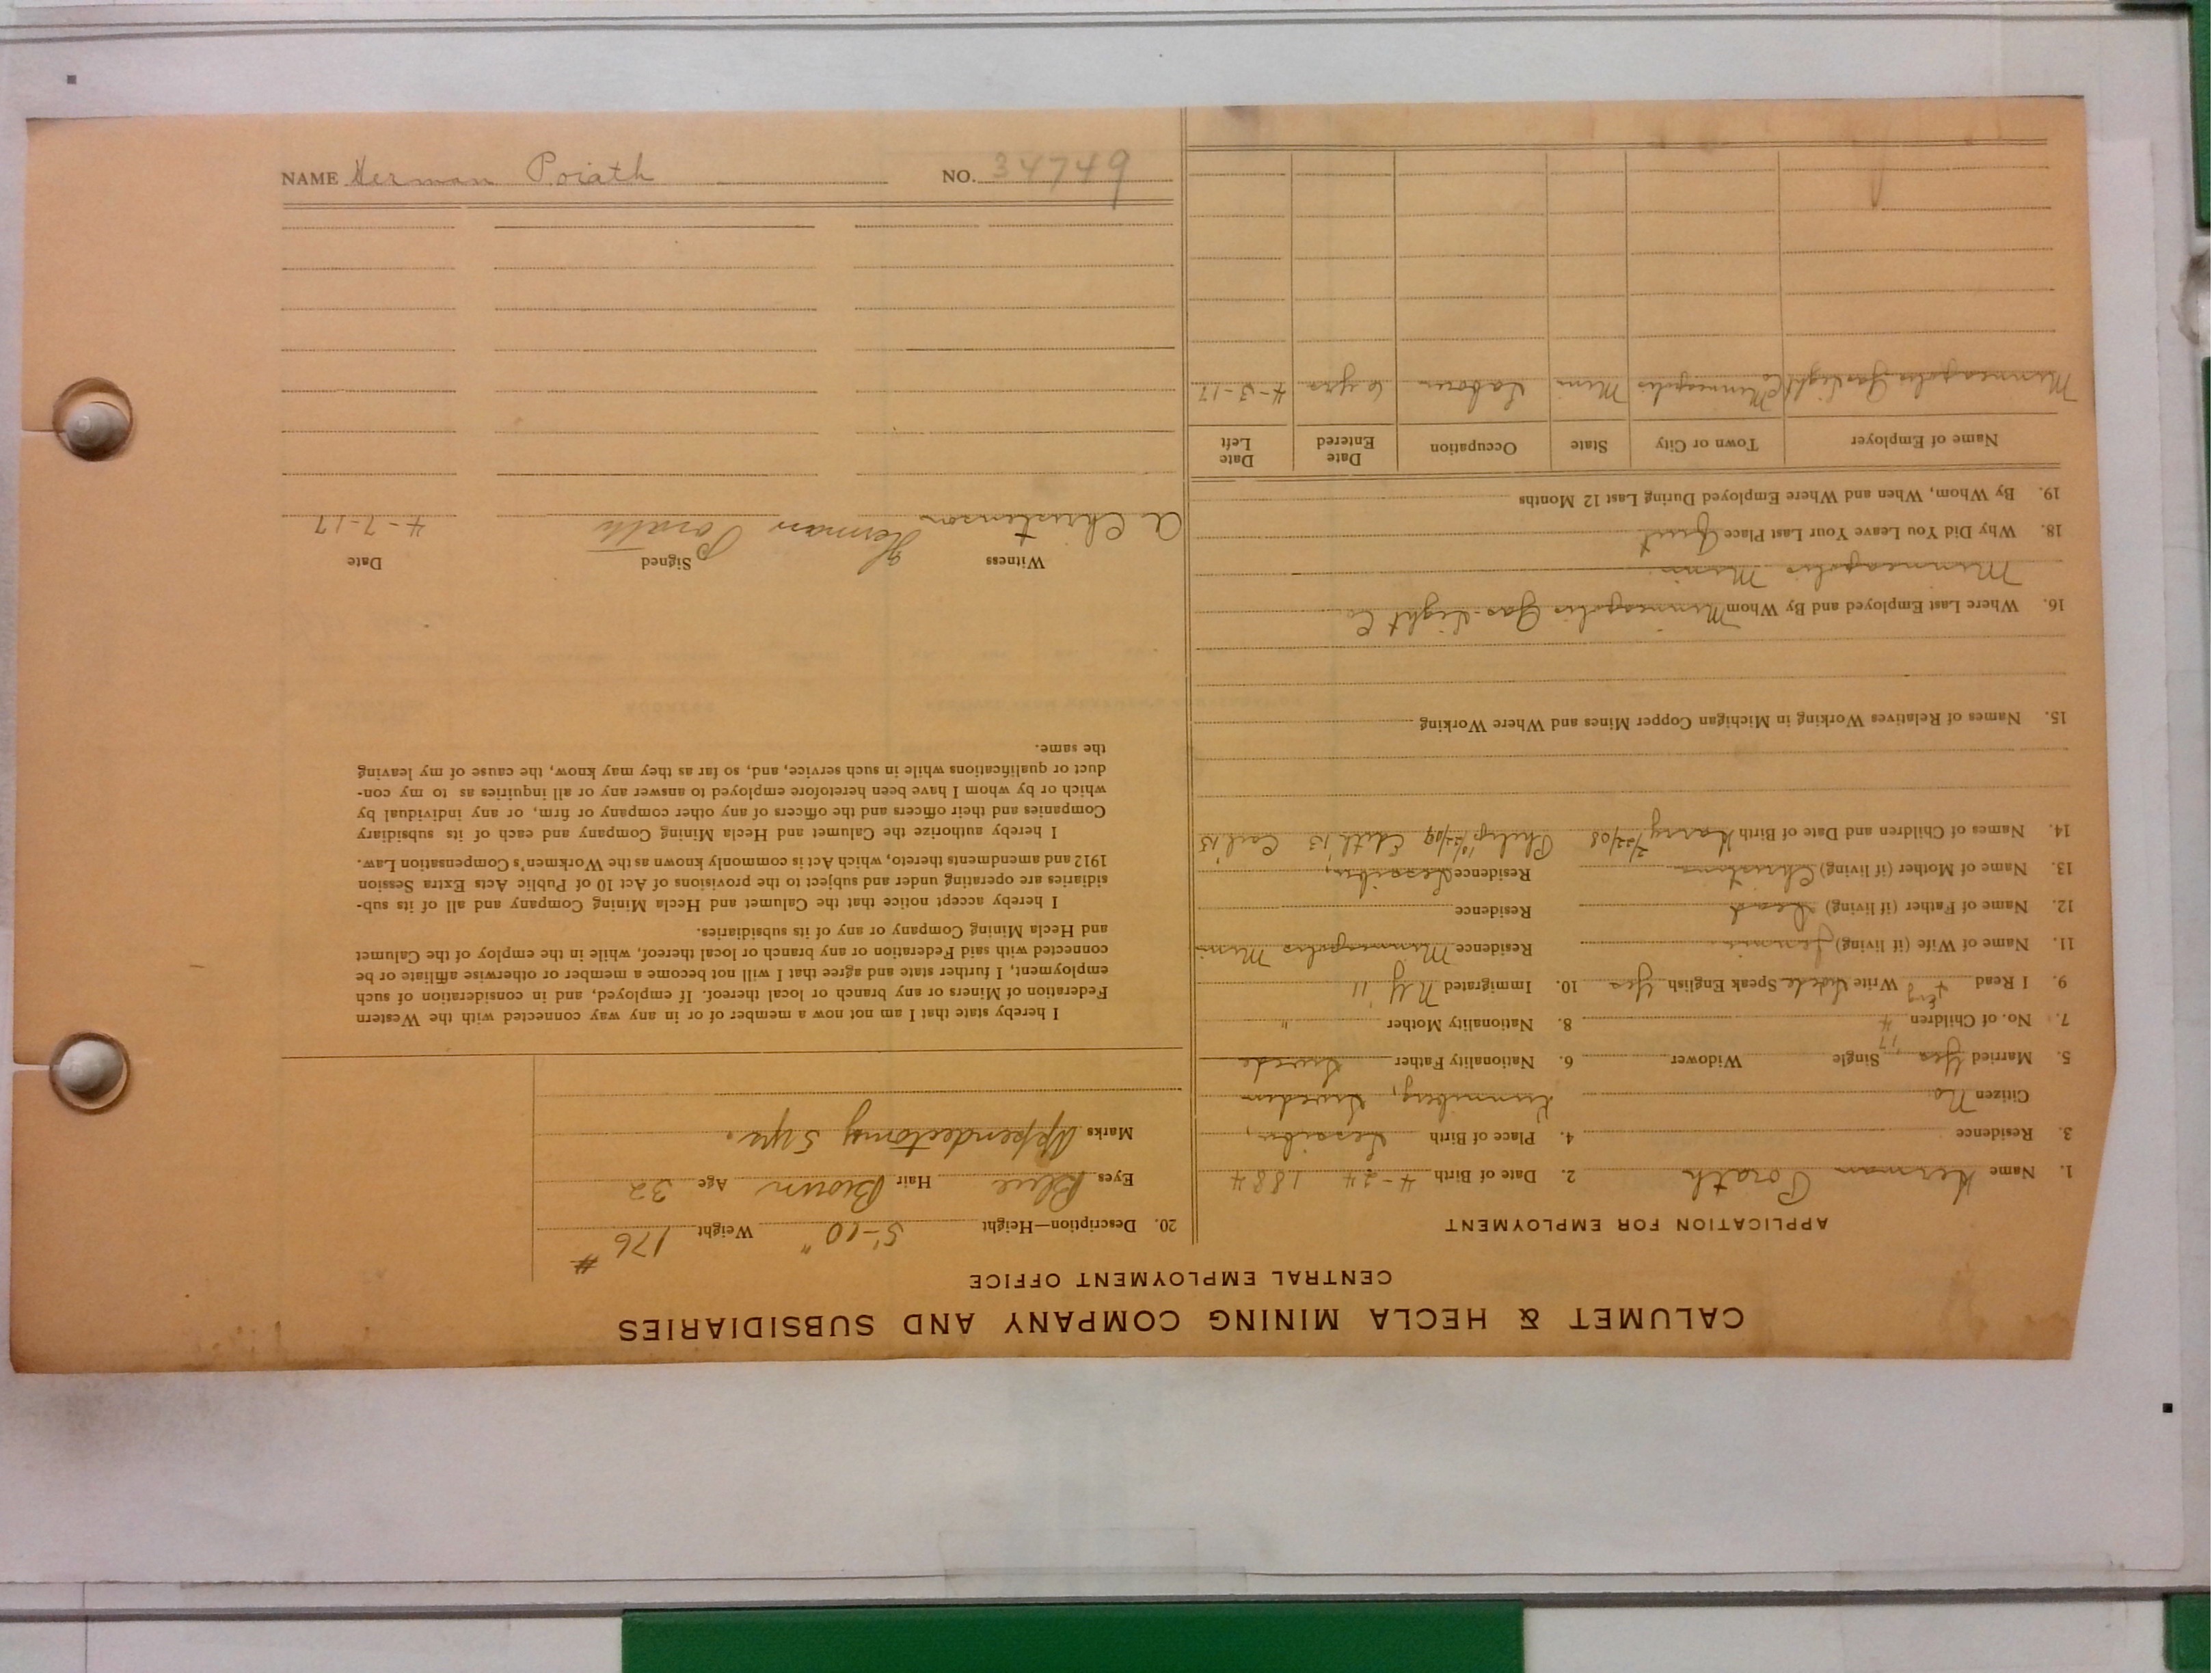 CALUMET & HECLA MINING COMPANY AND SUBSIDIARIES
CENTRAL EMPLOYMENT OFFICE
APPLICATION FOR EMPLOYMENT
1. Name Herman Porath 2. Date of Birth 4-24 1884
3. Residence 4. Place of Birth
Citizen No Sweden
5. Married Yes Single Widower 6. Nationality Father Swede
7. No. of Children 4 8. Nationality Mother "
9. I Read + Eng Write Swede Speak English Yes 10. Immigrated N.Y. '11
11. Name of Wife (if living) Jennie Residence Minneapolis Minn
12. Name of Father (if living) Dead Residence
13. Name of Mother (if living) Residence
14. Names of Children and Date of Birth Harry 2/22/08 Philip Edith '13 Carl '15
15. Names of Relatives Working in Michigan Copper Mines and Where Working
16. Where Last Employed and By Whom Minneapolis Gas Light Co
Minneapolis Minn
18. Why Did You Leave Your Last Place Quit
19. By Whom, When and Where Employed During Last 12 Months
Name of Employer Town or City State Occupation Date Entered Date Left
Minneapolis Gas Light Co Minneapolis Minn Laborer 6 yrs 4-3-17
20. Description—Height 5'-10" Weight 176 #
Eyes Blue Hair Brown Age 32
Marks Appendectomy 5 yrs.
I hereby state that I am not now a member of or in any way connected with the Western
Federation of Miners or any branch or local thereof. If employed, and in consideration of such
employment, I further state and agree that I will not become a member or otherwise affiliate or be
connected with said Federation or any branch or local thereof, while in the employ of the Calumet
and Hecla Mining Company or any of its subsidiaries.
I hereby accept notice that the Calumet and Hecla Mining Company and all of its sub-
sidiaries are operating under and subject to the provisions of Act 10 of Public Acts Extra Session
1912 and amendments thereto, which Act is commonly known as the Workmen's Compensation Law.
I hereby authorize the Calumet and Hecla Mining Company and each of its subsidiary
Companies and their officers and the officers of any other company or firm, or any individual by
which or by whom I have been heretofore employed to answer any or all inquiries as to my con-
duct or qualifications while in such service, and, so far as they may know, the cause of my leaving
the same.
Witness Signed Date
A Christenson Herman Porath 4-7-17
NAME Herman Porath NO. 34749